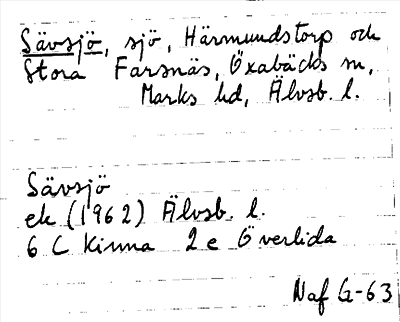 Sävsjö, sjö, Härmundstorp och
Stora Farsnäs, Öxabäcks sn,
Marks hd, Älvsb. l.
Sävsjö
ek (1962) Älvsb. l.
6 C Kinna 2 e Överlida
Naf G-63